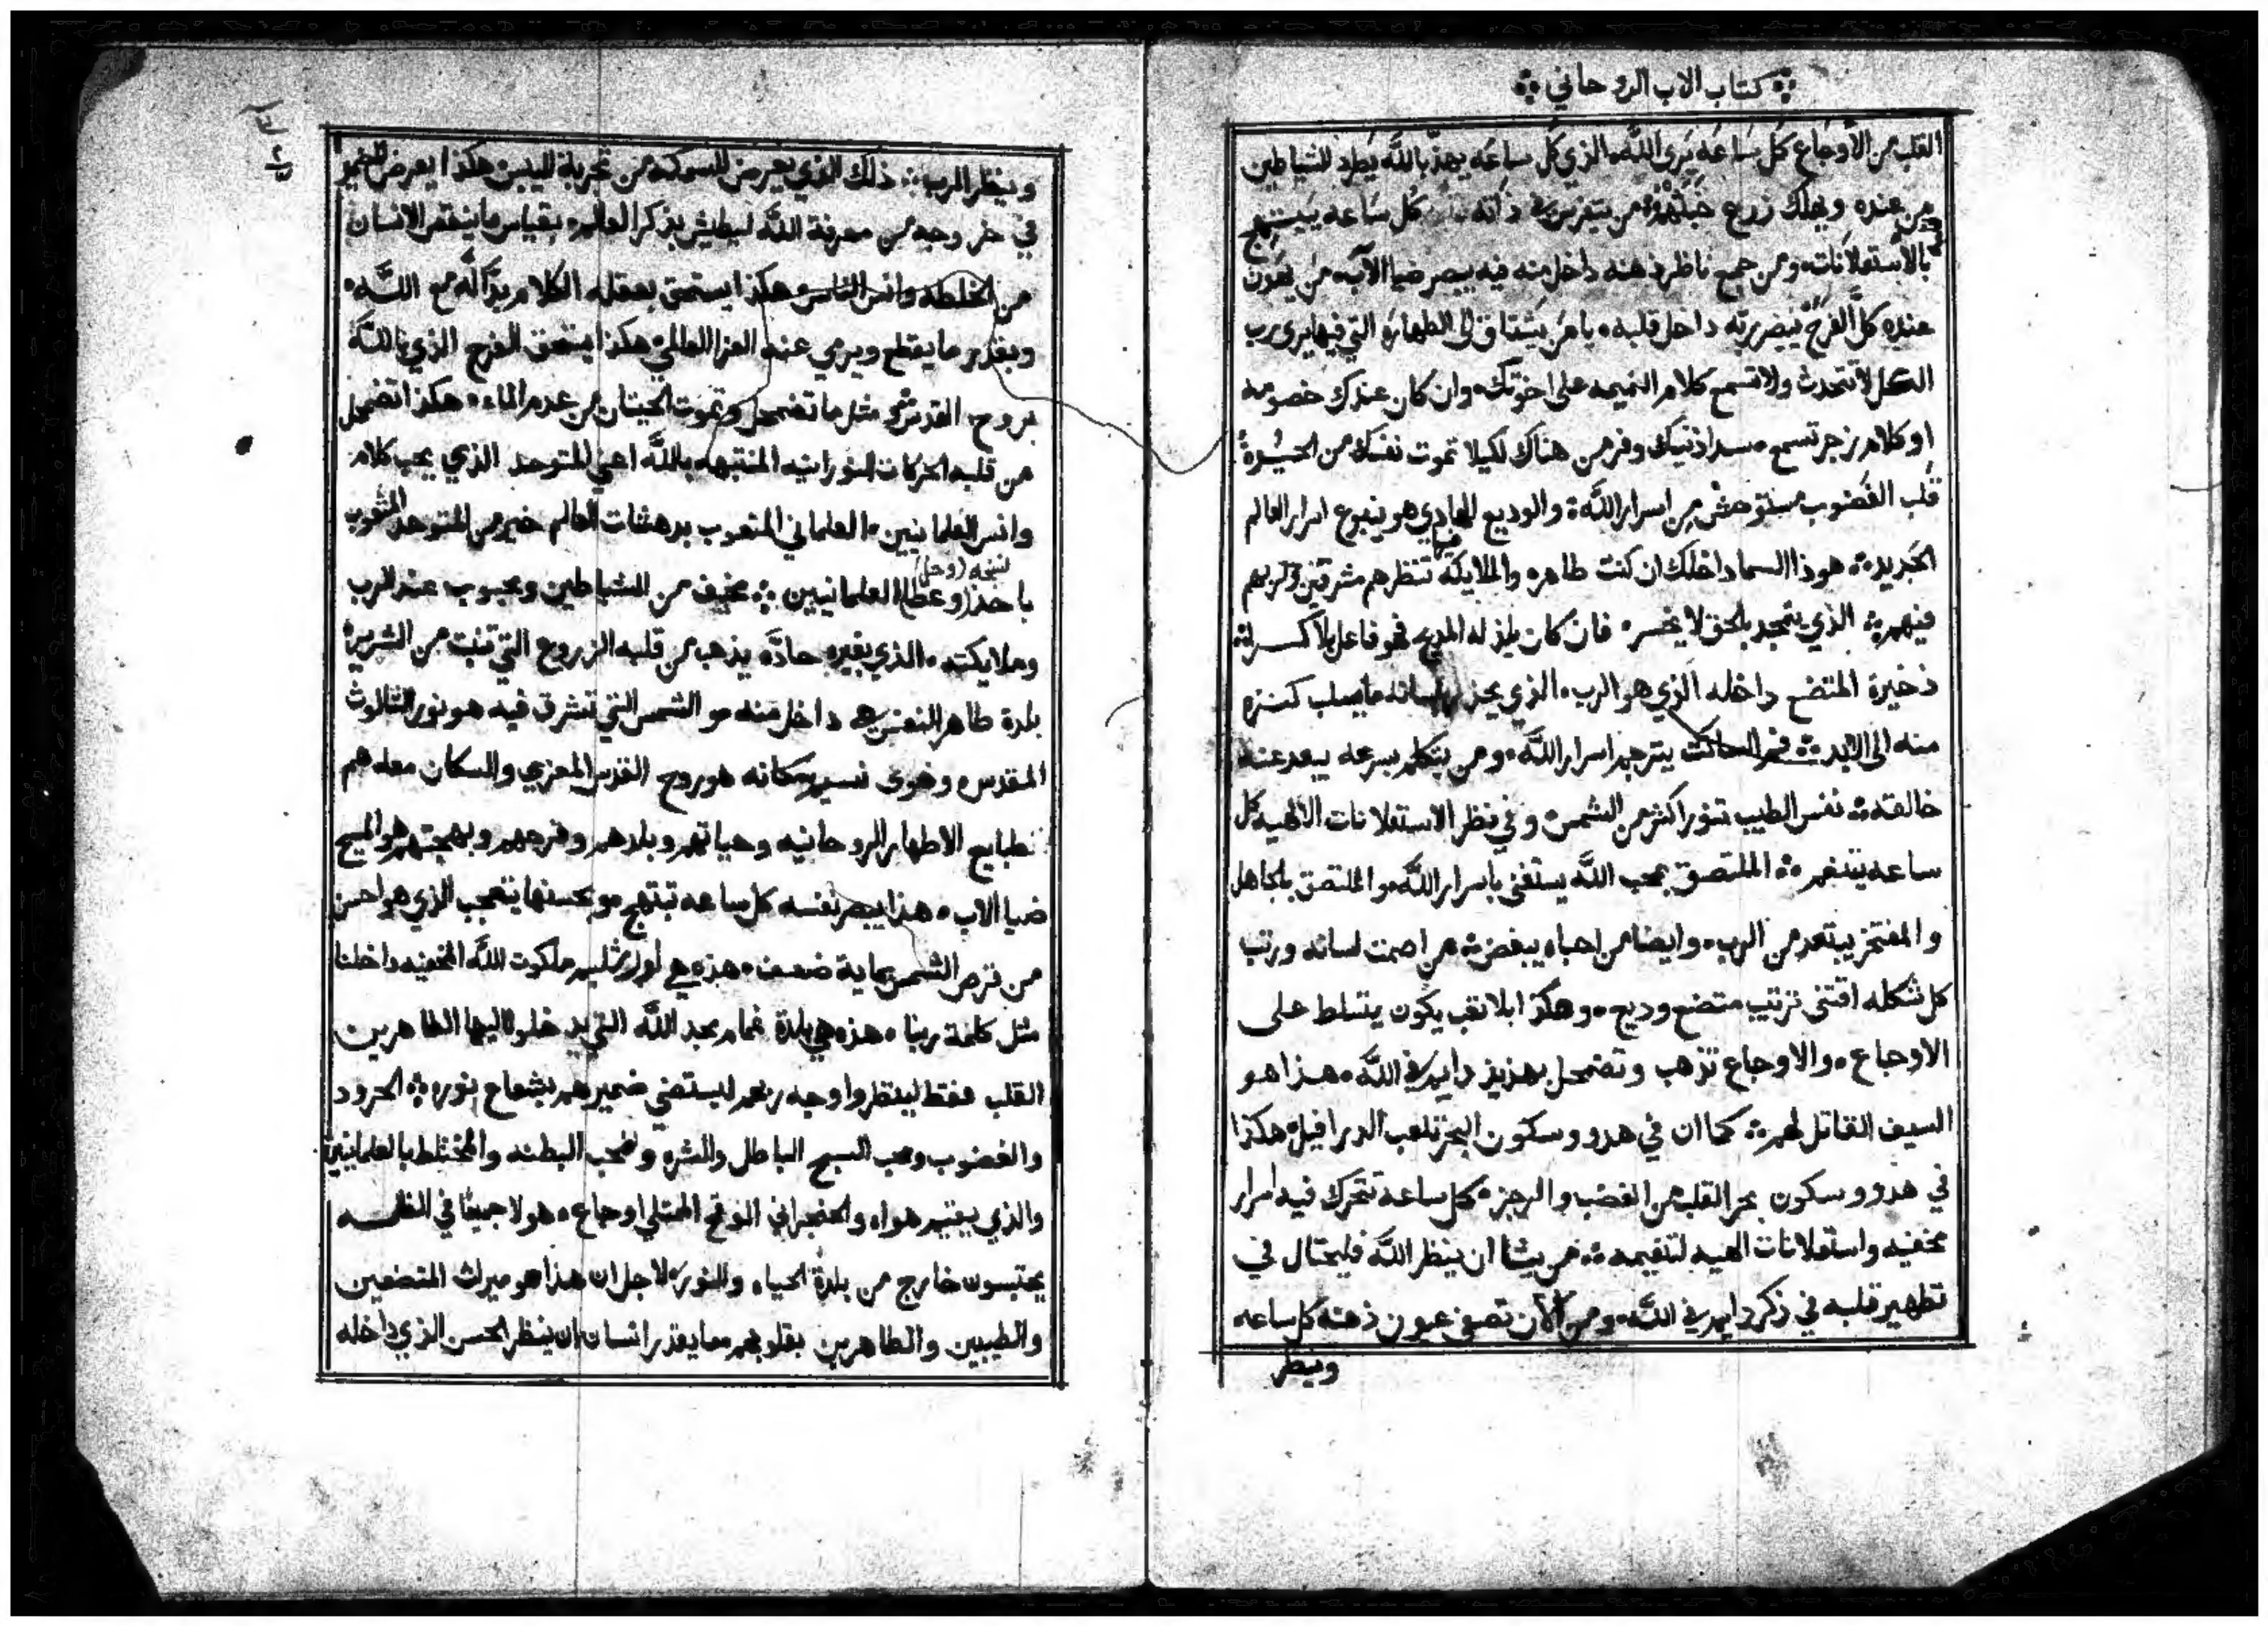 كتاب الاب الروحاني
القلب من الأوجاع كل ساعة يرى الله. الذي كل ساعه يهذ بالله يطرد الشياطين
من عنده ويهلك زرع من يتفرس في ذاته كل ساعه يبتهج
بالاستعلانات ومن جمع ناظر ذهنه داخل منه فيه يبصر ضيا الآب من
عنده كل الفرج يبصر ربه داخل قلبه يا من يشتاق الى الطهارة التي فيها يرى رب
الكل لا تتحدث ولا تسمع كلام النميمه على اخوتك وان كان عندك خصومه
او كلام زجر تسمع سد اذنيك وفر من هناك لكيلا تموت نفسك من
قلب الغضوب مستوحش من اسرار الله والوديع الهادي هو ينبوع اسرار العالم
الجديد هوذا السما داخلك ان كنت طاهره والملايكة تنظرهم مشرقين وربهم
فيهم الذي يتمجد بالحق لا يخسر فان كان يلذ له المديح فهو فاعل بلا كسر له
ذخيرة المتضع داخله الذي هو الرب الذي يحز لسانه ما يسلب كنزه
منه الى الابد فم الساكت يترجم اسرار الله ومن يتكلم بسرعه يبعد عنه
خالقه نفس الطيب تنور اكثر من الشمس وفي نظر الاستعلانات الالهيه كل
ساعه يتنغم الملتصق بمحب الله يستغنى باسرار الله والملتصق بالجاهل
والمفتخر يبتعد من الرب وايضا من احباه يبغض من اصمت لسانه ورتب
كل شكله اقتنى ترتيب متضع وديع وهكذا بلا تعب يكون يتسلط على
الاوجاع والاوجاع تذهب وتضمحل بهذيذ دايم في الله هذا هو
السيف القاتل لهم كما ان في هدو وسكون البحر تلعب الدرافيل هكذا
في هدو وسكون بحر القلب من الغضب والرجز كل ساعه تتحرك فيه اسرار
مخفيه واستعلانات الهيه لتنعيمه من يشا ان ينظر الله فليحتال في
تطهير قلبه في ذكر دايم في الله ومن الآن تصفي عيون ذهنه كل ساعه
وينظر
وينظر الرب ذلك الذي يعرض للسمكه من تجربة اليبس هكذا يعرض للضمير
في خروجه من معرفة الله ليطيش بذكر العالم بقياس ما ينقص الانسان
من الخلطه وانس الناس هكذا يستحق بعقله الكلام بدآلة مع الله
وبقدر ما يقطع ويرمي عنه العزا العالمي هكذا يستحق الفرح الذي بالله
بروح القدس مثل ما تضمحل وتموت الحيتان من عدم الماء هكذا تضمحل
من قلبه الحركات النورانيه المنتبهه بالله اعني المتوحد الذي يحب كلام
وانس العلمانيين العلماني المتعوب بدهشات العالم خير من المتوحد المتعوب
نسخه (وحل)
باخذ (وعطا) العلمانيين مخيف من الشياطين ومحبوب عند الرب
وملايكته الذي بغيره حادّه يذهب من قلبه الزروع التي تنبت من الشرير
بلدة طاهر النفس هي داخل منه والشمس التي تشرق فيه هو نور الثالوث
المقدس وهوى نسيم سكانه هو روح القدس المعزي والسكان معه هم
طبايع الاطهار الروحانيه وحياتهم وبلدهم وفرحهم وبهجتهم هو المسيح
ضيا الاب هذا يبصر نفسه كل ساعه تبتهج وبحسنها يتعجب الذي هو احسن
من قرص الشمس بماية ضعف هذه هي اورشليم ملكوت الله المخفيه داخلنا
مثل كلمة ربنا هذه هي بلدة غمام مجد الله التي يدخلوا اليها الطاهرين
القلب فقط لينظروا وجه ربهم ليستضي ضميرهم بشعاع نوره الحرود
والغضوب ومحب السبح الباطل والشره ومحب البطنه والمختلط بالعلمانيين
والذي يقيم هواه والحنجراني الوقح الممتلي اوجاع هولا جميعا في الظلمه
يحتبسون خارج من بلدة الحياه والنور لاجل ان هذا هو ميراث المتضعين
والطيبين والطاهرين بقلوبهم ما يقدر انسان ان ينظر الحسن الذي داخله